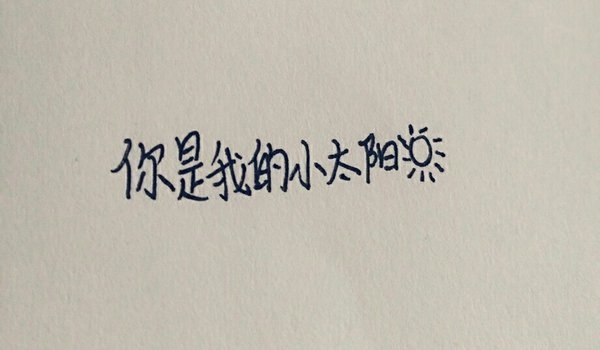 你是我的小太阳